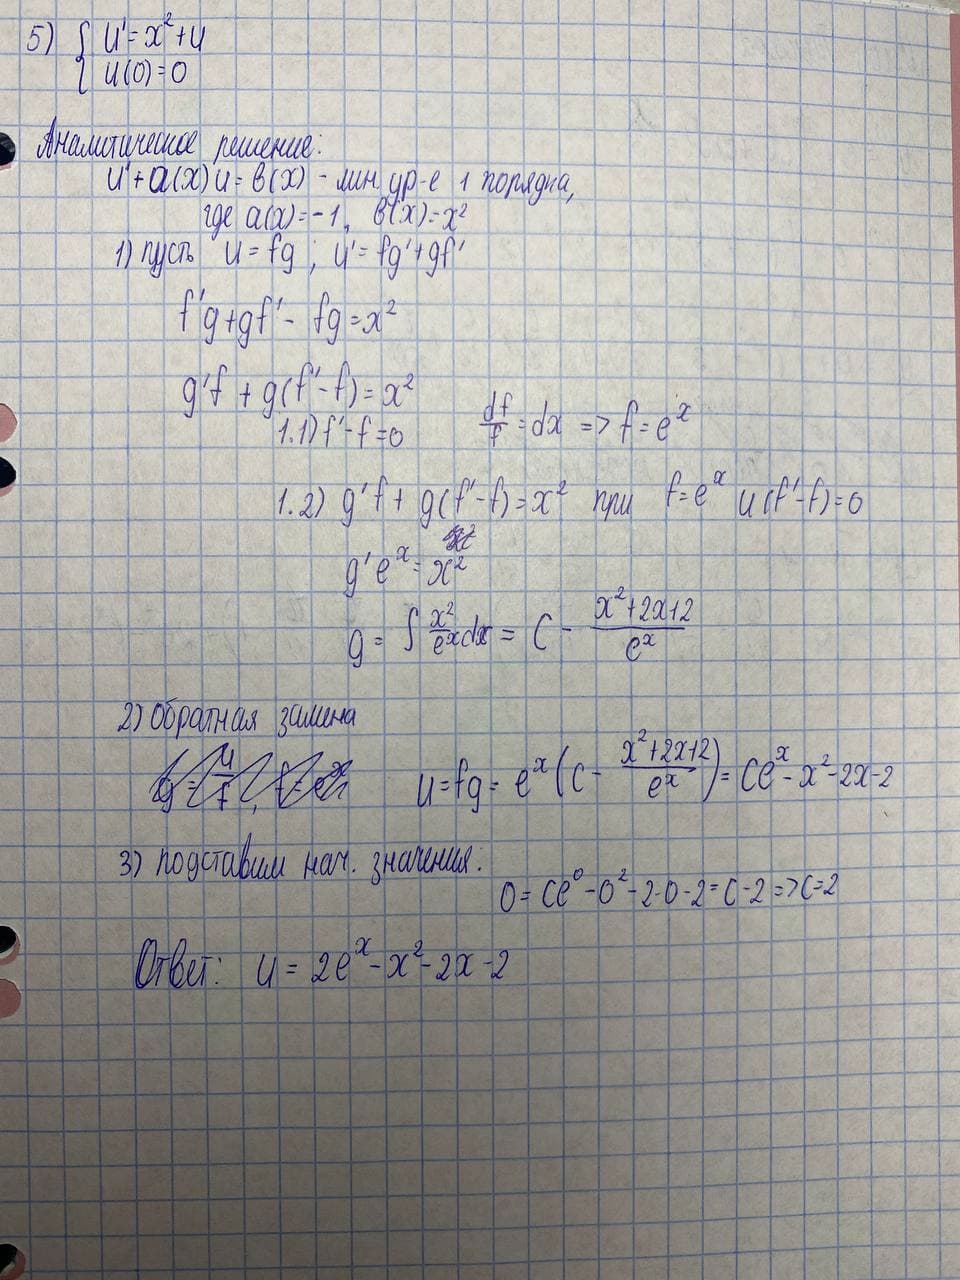 5) { u' = x² + u
u(0) = 0
Аналитическое решение:
u' + a(x)u = b(x) - лин. ур-е 1 порядка,
где a(x) = -1, b(x) = x²
1) пусть u = fg ; u' = fg' + gf'
f'g + gf' - fg = x²
g'f + g(f' - f) = x²
1.1) f' - f = 0   df/f = dx => f = eˣ
1.2) g'f + g(f' - f) = x² при f = eˣ и (f' - f) = 0
g'eˣ = x²
g = ∫ x²/eˣ dx = C - (x² + 2x + 2)/eˣ
2) обратная замена
u = fg = eˣ(C - (x² + 2x + 2)/eˣ) = Ceˣ - x² - 2x - 2
3) подставим нач. значения:
0 = Ce⁰ - 0² - 2·0 - 2 = C - 2 => C = 2
Ответ: u = 2eˣ - x² - 2x - 2